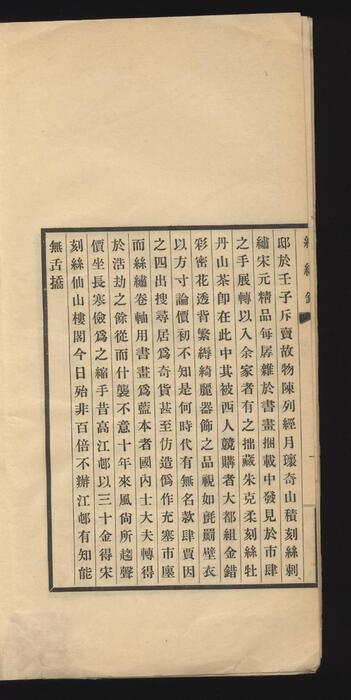 邸於壬子斥賣故物陳列經月瓌奇山積刻絲刺
繡宋元精品每孱雜於書畫捆載中發見於市肆
之手展轉以入余家者有之拙藏朱克柔刻絲牡
丹山茶卽在此中其被西人競購者大都組金錯
彩密花透背繁縟綺麗器飾之品視如氈罽壁衣
以方寸論價初不知是何時代有無名款肆賈因
之四出搜尋居爲奇貨甚至仿造僞作充塞市廛
而絲繡卷軸用書畫爲藍本者國內士大夫轉得
於浩劫之餘從而什襲不意十年來風尙所趨聲
價坐長寒儉爲之縮手昔高江邨以三十金得宋
刻絲仙山樓閣今日殆非百倍不辦江邨有知能
無舌撟